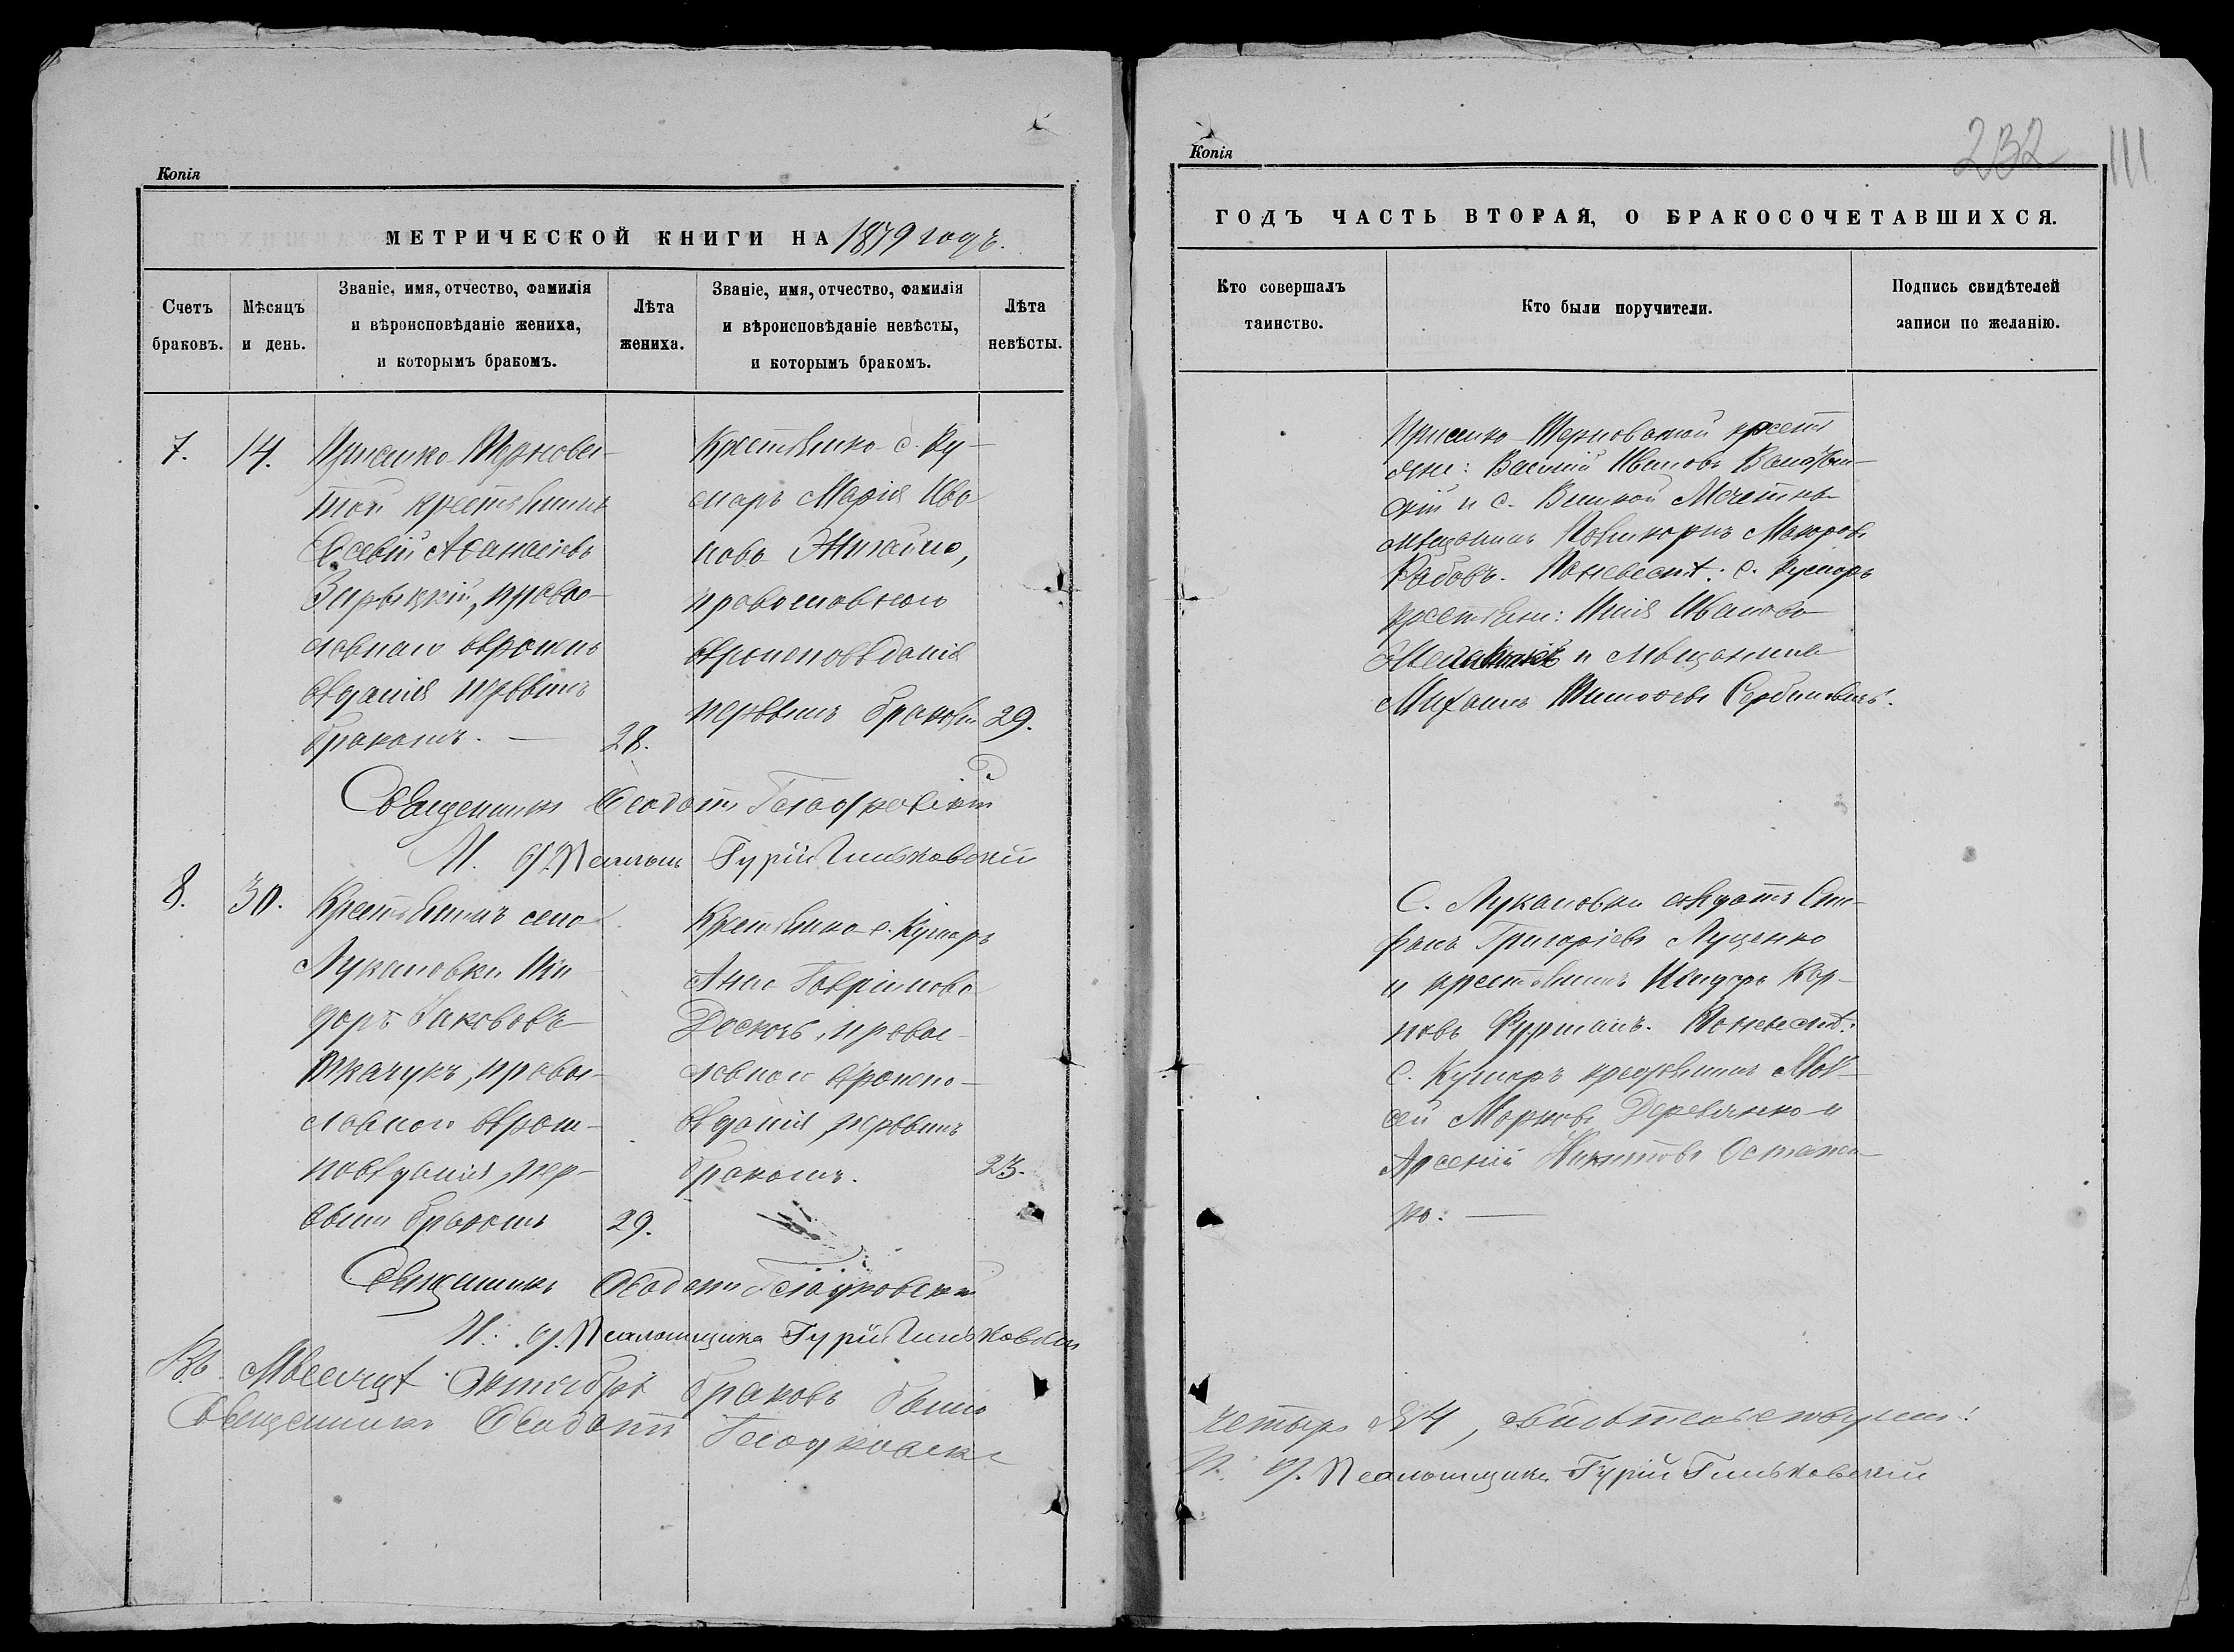 Копія
МЕТРИЧЕСКОЙ КНИГИ НА 1879 годъ.
Счетъ браковъ.
Мѣсяцъ и день.
Званіе, имя, отчество, фамилія
и вѣроисповѣданіе жениха,
и которымъ бракомъ.
Лѣта жениха.
Званіе, имя, отчество, фамилія
и вѣроисповѣданіе невѣсты,
и которымъ бракомъ.
Лѣта невѣсты.
7.
14.
крестьянинъ
Евсевій Аѳанасіевъ
Зарѣцкій, право-
славнаго вѣроиспо
вѣданія первымъ
бракомъ. —
28.
Крестьянка с. Ку-
маръ Марія Ива
нова
православнаго
вѣроисповѣданія
первымъ бракомъ
29.
Священникъ Ѳеодотъ
И. д. Псалом Гурій Гиньковскій
8.
30.
Крестьянинъ села
Лукановки
доръ Іакововъ
Ткачукъ, право-
славнаго вѣрои-
повѣданія, пер-
вымъ бракомъ
29.
Крестьянка с. Кумаръ
Анна Гавріилова
право-
славнаго вѣроиспо-
вѣданія, первымъ
бракомъ.
23.
Священникъ Ѳеодотъ
И. д. Псаломщика Гурій Гиньковскій
Въ Мѣсяцѣ Октябрѣ браковъ было
Священникъ Ѳеодотъ
Копія
232
111
ГОДЪ ЧАСТЬ ВТОРАЯ, О БРАКОСОЧЕТАВШИХСЯ.
Кто совершалъ
таинство.
Кто были поручители.
Подпись свидѣтелей
записи по желанію.
крестъ
яне: Василій Ивановъ
кій и с. Великой Мечетны
мѣщанинъ Макаровъ
По невѣстѣ: с. Кумаръ
крестьяне: Илія Ивановъ
и мѣщанинъ
Михаилъ Тимоѳеевъ
С. Лукановки солдатъ Сте-
фанъ Григоріевъ Луценко
и крестьянинъ Исидоръ Кар-
повъ Фурманъ. По невѣстѣ:
с. Кумаръ крестьянинъ Моѵ-
сей Марковъ Деревянко и
Арсеній Никитовъ Остапен-
ко: —
четыре №4, свидѣтельствуемъ:
И. д. Псаломщика Гурій Гиньковскій